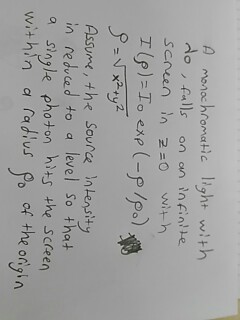 A monochromatic light with
do, falls on an infinite
screen in z=0 with
I(ρ) = I₀ exp(-ρ/ρ₀)
ρ = √x²+y²
Assume, the source intensity
in reduced to a level so that
a single photon hits the screen
within a radius ρ₀ of the origin